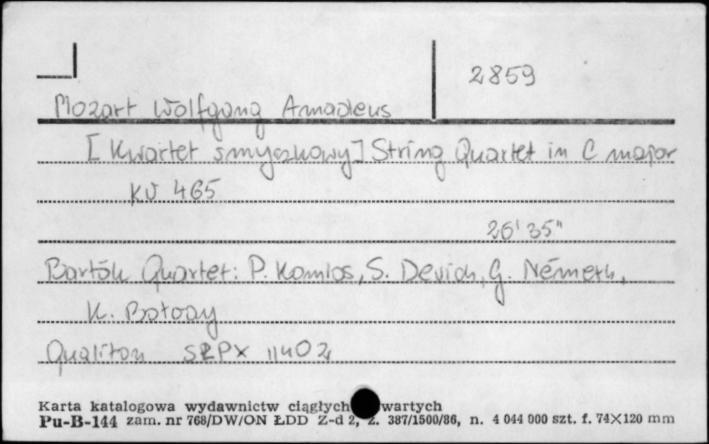 2859
Mozart Wolfgang Amadeus
[Kwartet smyczkowy] String Quartet in C major
KV 465
26'35"
Bartók Quartet: P. Komlos, S. Devich, G. Németh,
K. Botvay
Qualiton SLPX 11402
Karta katalogowa wydawnictw ciągłych wartych
Pu-B-144 zam. nr 768/DW/ON ŁDD Z-d 2, z. 387/1500/86, n. 4 044 000 szt. f. 74×120 mm